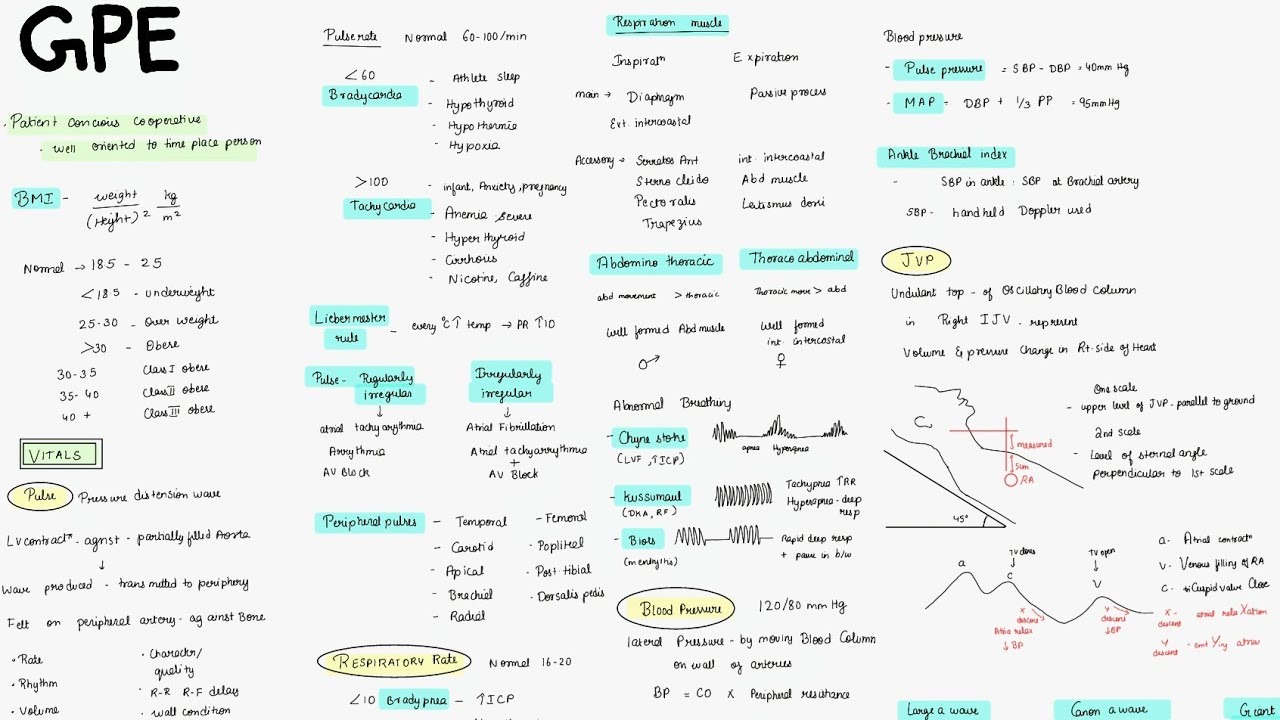 GPE
. Patient Concious cooperative
. well oriented to time place person
BMI - weight / (Height)² kg / m²
Normal → 18.5 - 25
<18.5 - underweight
25-30 - Over weight
>30 - Obese
30-35 Class I obese
35-40 Class II obese
40 + Class III obese
VITALS
Pulse Pressure distension wave
LV contractⁿ - agnst - partially filled Aorta
↓
Wave produced - transmitted to periphery
Felt on peripheral artery - against Bone
• Rate
• Rhythm
• Volume
• Character/
quality
• R-R R-F delay
• wall condition
Pulse rate Normal 60-100/min
<60
Bradycardia
- Athlete sleep
- Hypothyroid
- Hypothermia
- Hypoxia
>100
Tachycardia
- infant, Anxiety, pregnancy
- Anemia severe
- Hyperthyroid
- Cirrhosis
- Nicotine, Caffine
Liebermester
rule
- every °C↑ temp → PR ↑10
Pulse - Regularly
irregular
↓
atrial tachyarrythmia
Arrythmia
AV Block
Irregularly
irregular
↓
Atrial Fibrillation
Atrial tachyarrythmia
+
AV Block
Peripheral pulses
- Temporal
- Carotid
- Apical
- Brachial
- Radial
- Femoral
- Popliteal
- Post tibial
- Dorsalis pedis
RESPIRATORY RATE Normal 16-20
<10 Bradypnea - ↑ICP
Respiration muscle
Inspiratn Expiration
main → Diaphragm Passive process
Ext. intercoastal
Accessory → Serratos Ant int. intercoastal
Sterno cleido Abd muscle
Pectoralis Latismus dorsi
Trapezius
Abdomino thoracic
abd movement > thoracic
well formed Abd muscle
♂
Thoraco abdominal
Thoracic move > abd
Well formed
int. intercostal
♀
Abnormal Breathing
- Chyne stoke
(LVF, ↑ICP)
apnea Hyperapnea
- Kussumaul
(DKA, RF)
Tachypnea ↑RR
Hyperapnea - deep
resp
- Biots
(meningitis)
Rapid deep resp
+ pause in b/w
Blood Pressure 120/80 mm Hg
lateral Pressure - by moving Blood Column
on wall of arteries
BP = CO X Peripheral resistance
Blood pressure
- Pulse pressure = SBP - DBP = 40mm Hg
- MAP - DBP + 1/3 PP = 95mmHg
Ankle Brachial index
- SBP in ankle : SBP at Brachial artery
SBP - handheld Doppler used
JVP
Undulant top - of Oscillatry Blood Column
in Right IJV - represent
Volume & pressure Change in Rt. side of Heart
measured
5cm
RA
45°
One scale
- upper level of JVP - parallel to ground
2nd scale
- Level of sternal angle
perpendicular to 1st scale
a
TV closes
↓
C
TV open
↓
V
x
descent
↓
Atria relax
↓ BP
y
descent
↓BP
a - Atrial contractⁿ
v - Venous filling of RA
C - tricuspid valve Close
X - descent atrial relaXation
Y descent - emtYing atria
Large a wave
Canon a wave
Giant